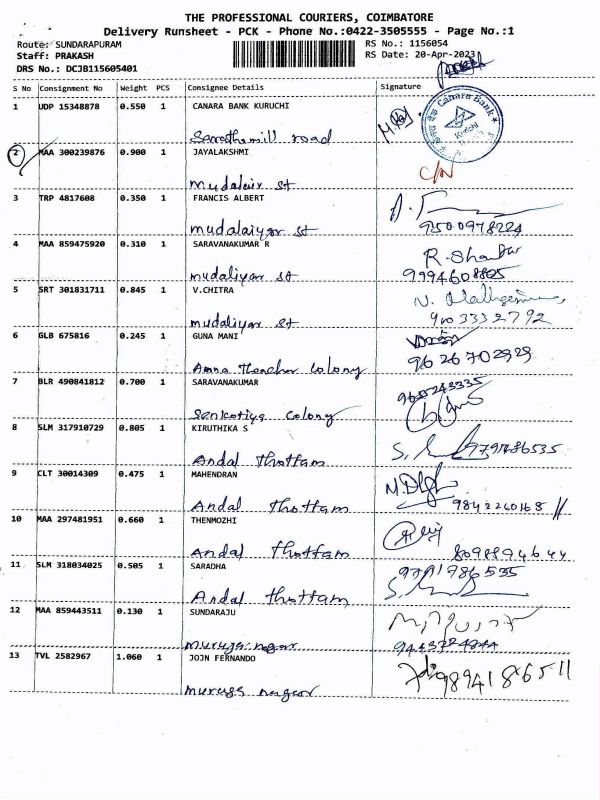 THE PROFESSIONAL COURIERS, COIMBATORE
Delivery Runsheet - PCK - Phone No.:0422-3505555 - Page No.:1
Route: SUNDARAPURAM RS No.: 1156054
Staff: PRAKASH RS Date: 20-Apr-2023
DRS No.: DCJB115605401
S No Consignment No Weight PCS Consignee Details Signature
1 UDP 15348878 0.550 1 CANARA BANK KURUCHI
Canara Bank
road
2 MAA 300239876 0.900 1 JAYALAKSHMI
C/N
st
3 TRP 4817608 0.350 1 FRANCIS ALBERT
mudalaiyar st
4 MAA 859475920 0.310 1 SARAVANAKUMAR R
R.Shankar
mudaliyar st 9994608805
5 SRT 301831711 0.845 1 V.CHITRA
mudaliyar st 9103332792
6 GLB 675816 0.245 1 GUNA MANI
9626702929
Colony
7 BLR 490841812 0.700 1 SARAVANAKUMAR
Colony
8 SLM 317910729 0.805 1 KIRUTHIKA S
Andal Thottam
9 CLT 30014309 0.475 1 MAHENDRAN
Andal Thottam 9842260168
10 MAA 297481951 0.660 1 THENMOZHI
Andal Thottam
11 SLM 318034025 0.505 1 SARADHA
9791786535
Andal Thottam
12 MAA 859443511 0.130 1 SUNDARAJU
nagar
13 TVL 2582967 1.060 1 JOJN FERNANDO
9894186511
nagar